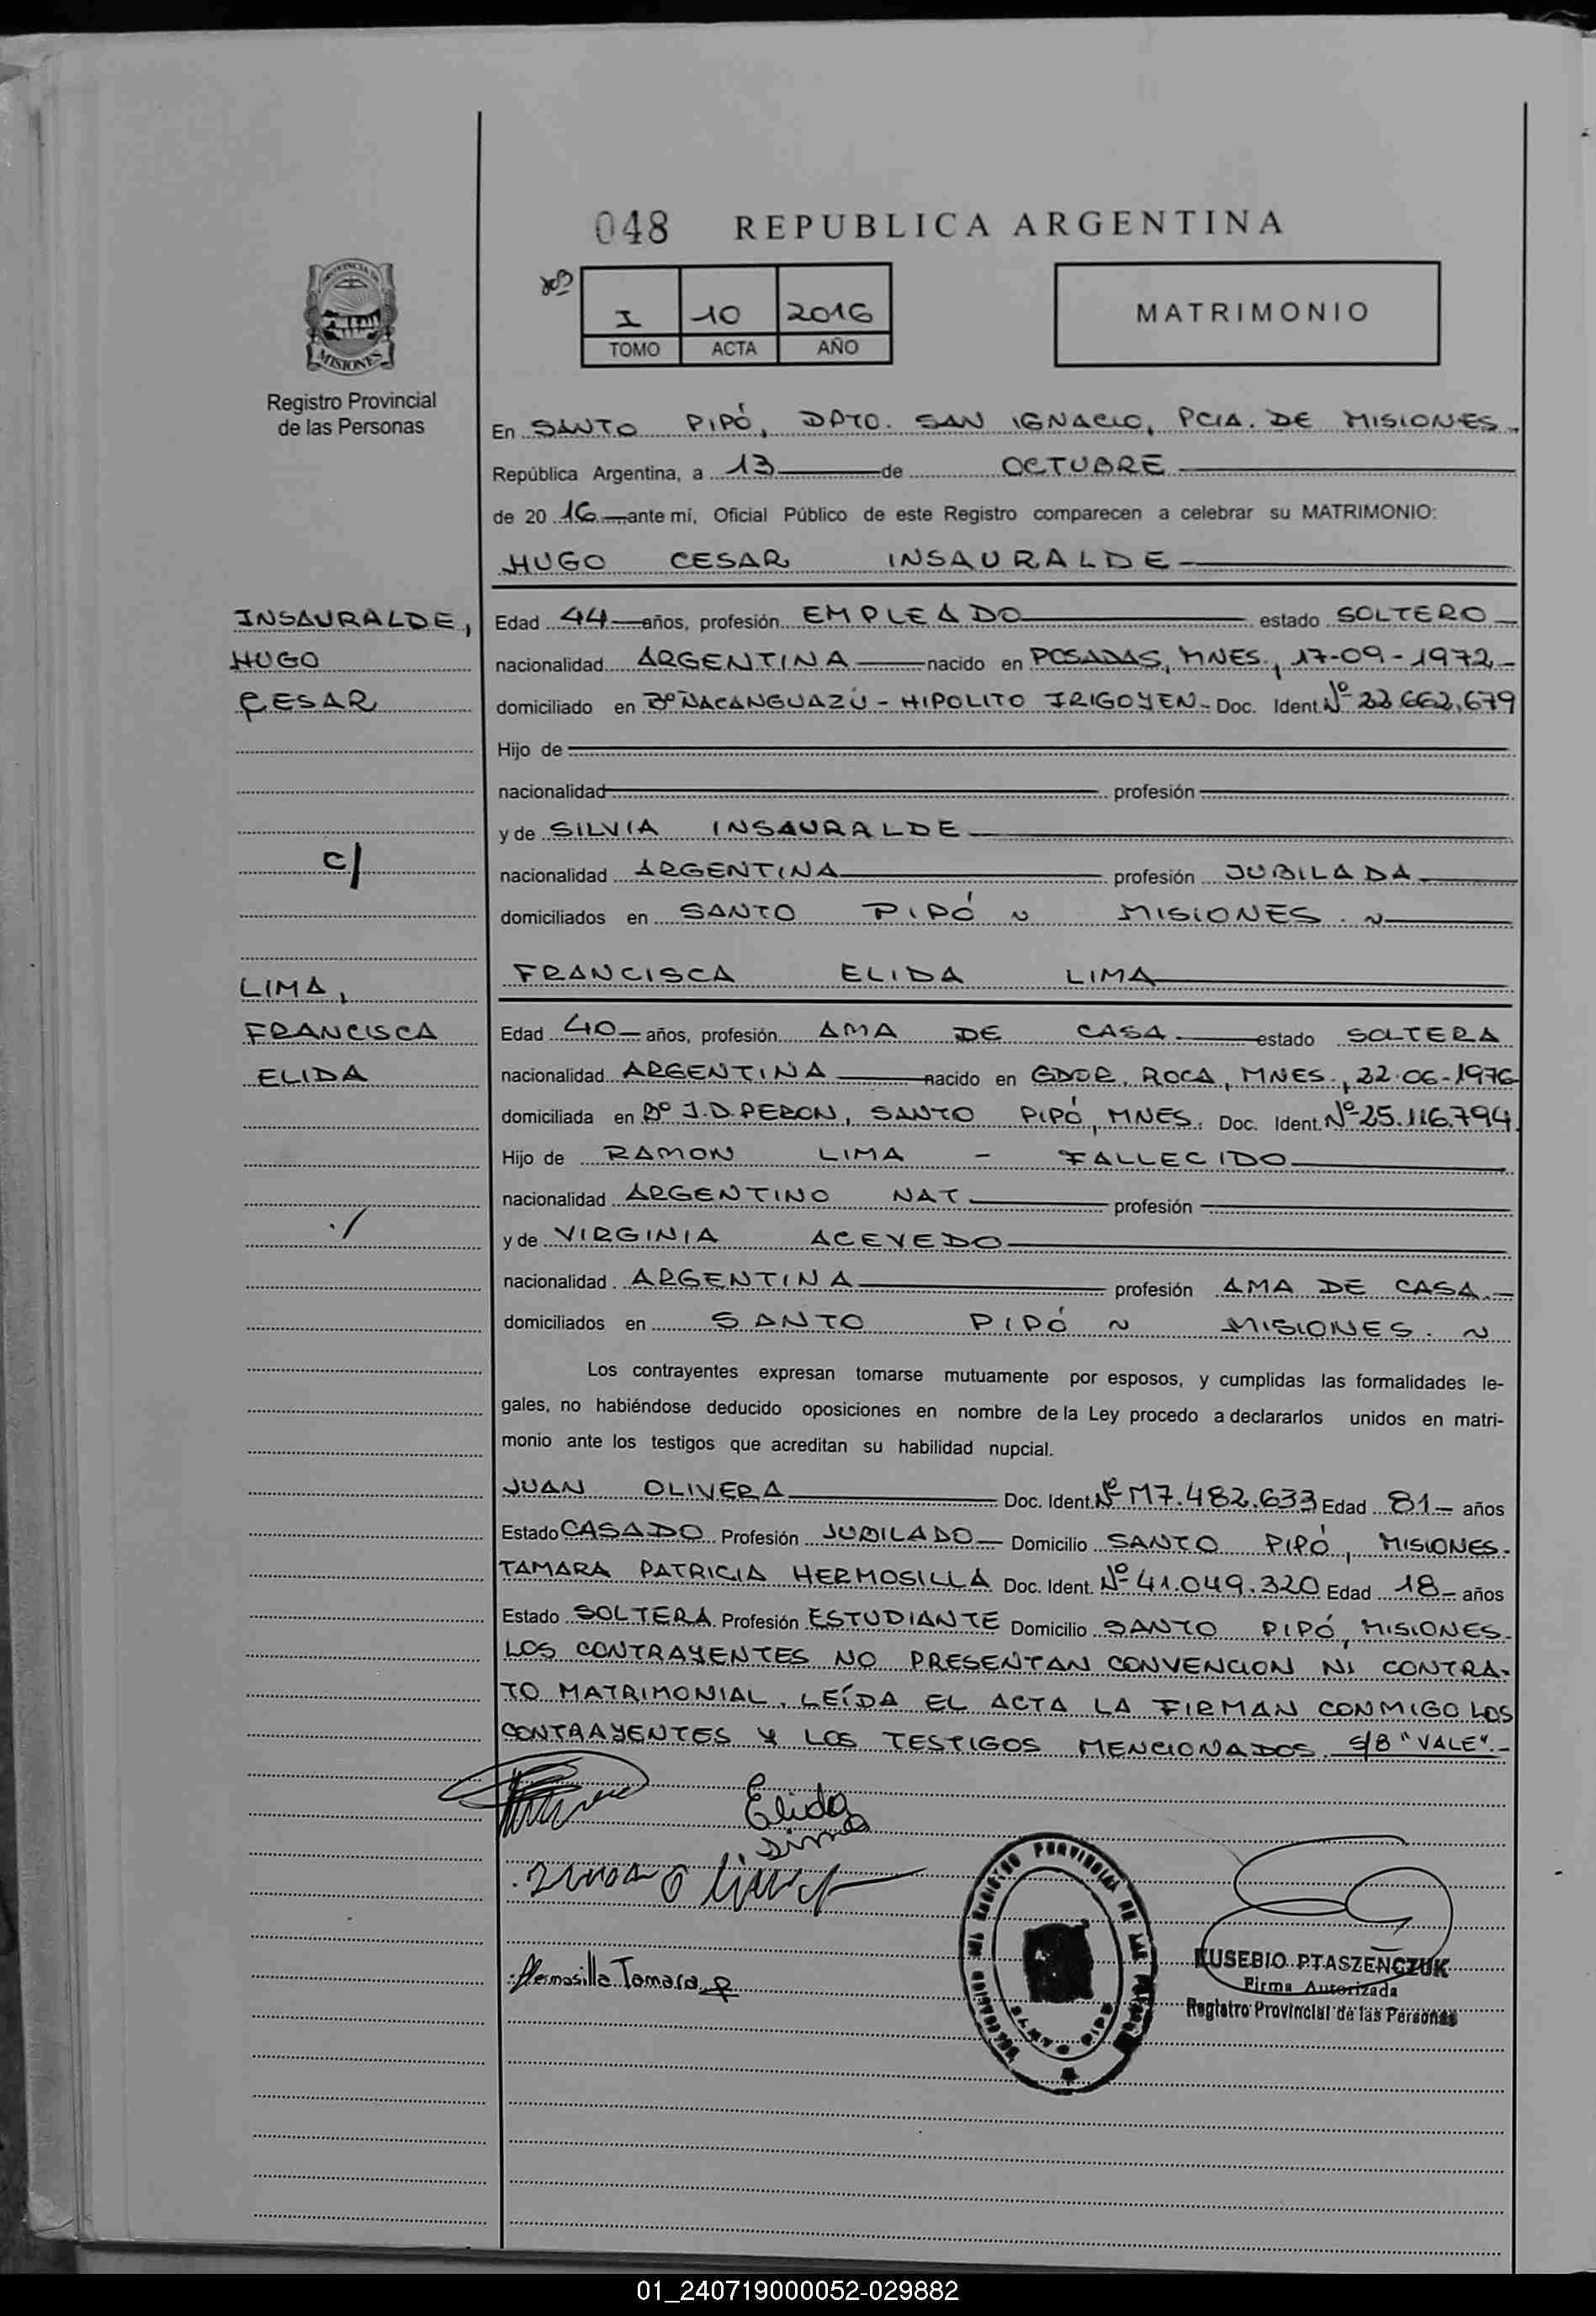 048 REPUBLICA ARGENTINA
I 10 2016
TOMO ACTA AÑO
MATRIMONIO
PROVINCIA DE
MISIONES
Registro Provincial
de las Personas
En SANTO PIPÓ, DPTO. SAN IGNACIO, PCIA. DE MISIONES
República Argentina, a 13 de OCTUBRE
de 20 16 ante mí, Oficial Público de este Registro comparecen a celebrar su MATRIMONIO:
HUGO CESAR INSAURALDE
INSAURALDE,
HUGO
CESAR
c/
LIMA,
FRANCISCA
ELIDA
./
Edad 44 años, profesión EMPLEADO estado SOLTERO
nacionalidad ARGENTINA nacido en POSADAS, MNES., 17-09-1972
domiciliado en Bº ÑACANGUAZÚ - HIPOLITO IRIGOYEN. Doc. Ident. Nº 22.662.679
Hijo de
nacionalidad profesión
y de SILVIA INSAURALDE
nacionalidad ARGENTINA profesión JUBILADA
domiciliados en SANTO PIPÓ ~ MISIONES. ~
FRANCISCA ELIDA LIMA
Edad 40 años, profesión AMA DE CASA estado SOLTERA
nacionalidad ARGENTINA nacido en GDOR. ROCA, MNES., 22-06-1976
domiciliada en Bº J.D. PERON, SANTO PIPÓ, MNES. Doc. Ident. Nº 25.116.794
Hijo de RAMON LIMA - FALLECIDO
nacionalidad ARGENTINO NAT. profesión
y de VIRGINIA ACEVEDO
nacionalidad ARGENTINA profesión AMA DE CASA.
domiciliados en SANTO PIPÓ ~ MISIONES. ~
Los contrayentes expresan tomarse mutuamente por esposos, y cumplidas las formalidades le-
gales, no habiéndose deducido oposiciones en nombre de la Ley procedo a declararlos unidos en matri-
monio ante los testigos que acreditan su habilidad nupcial.
JUAN OLIVERA Doc. Ident. Nº M7.482.633 Edad 81 años
Estado CASADO Profesión JUBILADO Domicilio SANTO PIPÓ, MISIONES.
TAMARA PATRICIA HERMOSILLA Doc. Ident. Nº 41.049.320 Edad 18 años
Estado SOLTERA Profesión ESTUDIANTE Domicilio SANTO PIPÓ, MISIONES.
LOS CONTRAYENTES NO PRESENTAN CONVENCION NI CONTRA-
TO MATRIMONIAL. LEÍDA EL ACTA LA FIRMAN CONMIGO LOS
CONTRAYENTES Y LOS TESTIGOS MENCIONADOS. S/B "VALE".
Elida
Lima
Juan Olivera
Hermosilla Tamara P
REGISTRO PROVINCIAL DE LAS
EUSEBIO PTASZEŃCZUK
Firma Autorizada
Registro Provincial de las Personas
01_240719000052-029882